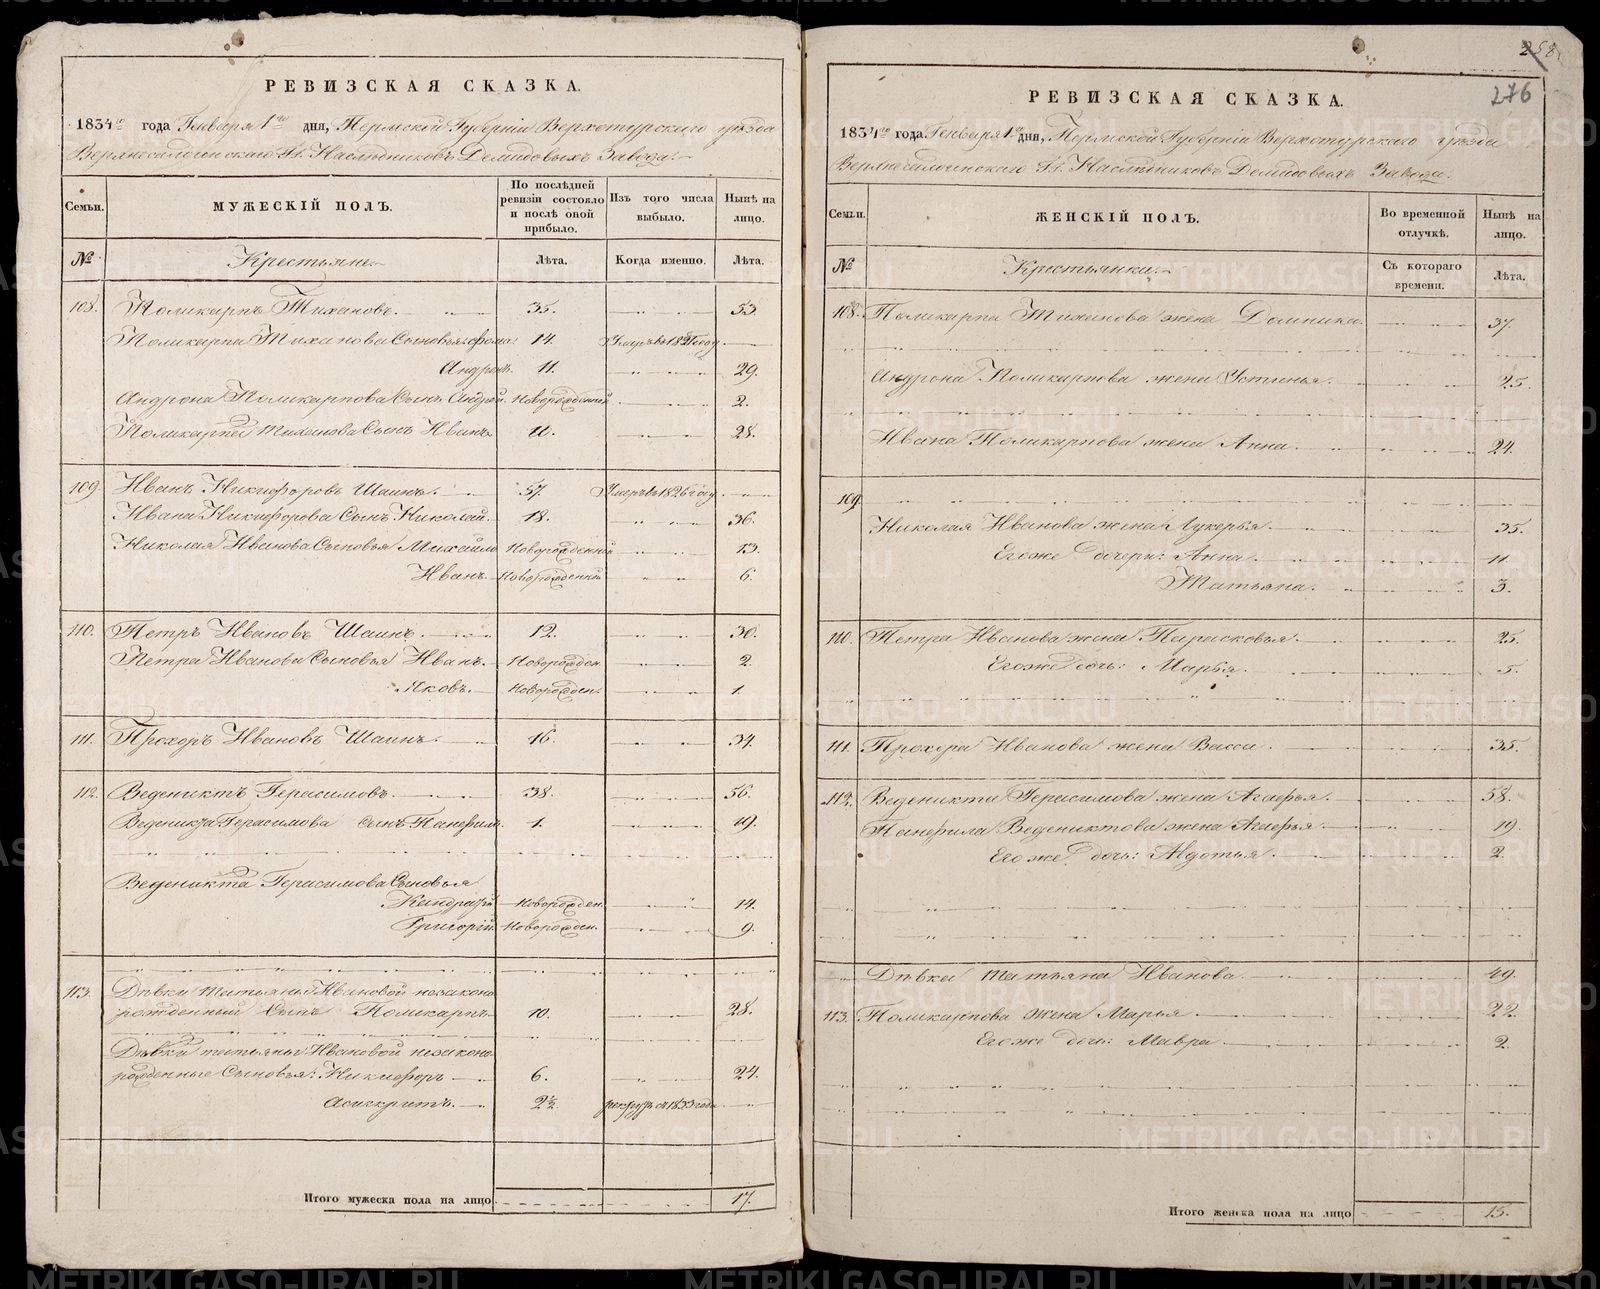 РЕВИЗСКАЯ СКАЗКА.
1834го года Генваря 1го дня, Пермской Губерніи Верхотурского уезда
Гг. Наследниковъ Демидовыхъ Завода.
Семьи.
МУЖЕСКІЙ ПОЛЪ.
По последней ревизіи состояло и послѣ оной прибыло.
Изъ того числа выбыло.
Нынѣ на лицо.
№
Крестьяне.
Лѣта.
Когда именно.
Лѣта.
108. Поликарпъ Тихановъ. 35. 53.
Поликарпа Тиханова Сыновья: 14. Умеръ въ году
Андронъ. 11. 29.
Андрона Поликарпова Сынъ Андрей. Новорожденный 2.
Поликарпа Тиханова Сынъ Иванъ. 10. 28.
109. Иванъ Никифоровъ Шаинъ. 57. Умеръ въ 1826 году
Ивана Никифорова Сынъ Николай. 18. 36.
Николая Иванова Сыновья Михайло Новорожденный 13.
Иванъ. Новорожденный 6.
110. Петръ Ивановъ Шаинъ. 12. 30.
Петра Иванова Сыновья Иванъ. Новорожден. 2.
Яковъ. Новорожден. 1.
111. Прохоръ Ивановъ Шаинъ. 16. 34.
112. Ведениктъ Герасимовъ. 38. 56.
Веденикта Герасимова сынъ Панфилъ. 1. 19.
Веденикта Герасимова Сыновья
Кандратій Новорожден. 14.
Григорій Новорожден. 9.
113. Дѣвки Татьяны Ивановой незаконо
рожденный Сынъ Поликарпъ. 10. 28.
Дѣвки татьяны Ивановой незаконо
рожденные Сыновья: Никифоръ 6. 24.
Асикритъ. 2½ рекрутъ съ 1833 года
Итого мужеска пола на лицо 17.
258
276
РЕВИЗСКАЯ СКАЗКА.
1834го года Генваря 1го дня, Пермской Губерніи Верхотурского уезда
Гг. Наследниковъ Демидовыхъ Завода.
Семьи.
ЖЕНСКІЙ ПОЛЪ.
Во временной отлучкѣ.
Нынѣ на лицо.
№
Крестьянки.
Съ котораго времени.
Лѣта.
108. Поликарпа Тиханова жена Домника. 37.
Андрона Поликарпова жена Устинья. 25.
Ивана Поликарпова жена Анна. 24.
109.
Николая Иванова жена Лукерья. 35.
Егоже дочери: Анна. 11.
Татьяна. 3.
110. Петра Иванова жена Парасковья. 25.
Егоже дочь: Марья. 5.
111. Прохора Иванова жена Васса. 35.
112. Веденикта Герасимова жена Агафья. 58.
Панфила Вениктова жена Агафья. 19.
Егоже дочь: Авдотья. 2.
Дѣвка татьяна Иванова. 49.
113. Поликарпова жена Марья 22.
Егоже дочь: Мавра. 2.
Итого женска пола на лицо 15.
METRIKI.GASO-URAL.RU